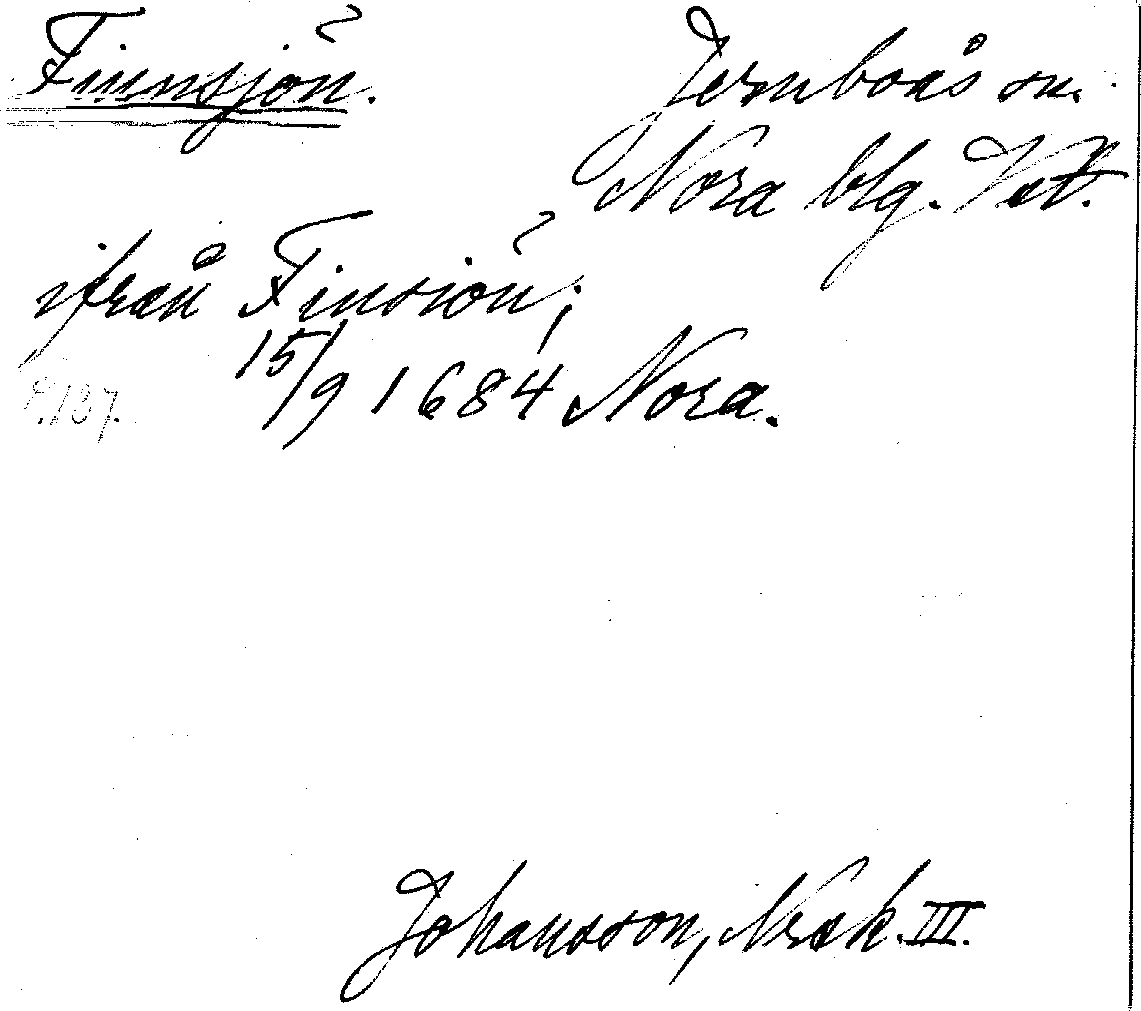 Finnsjön.
Jernboås sn.
Nora blg. Vstl.
ifrån Finsiön;
15/9 1684 Nora.
s.137.
Johansson, Norak. III.